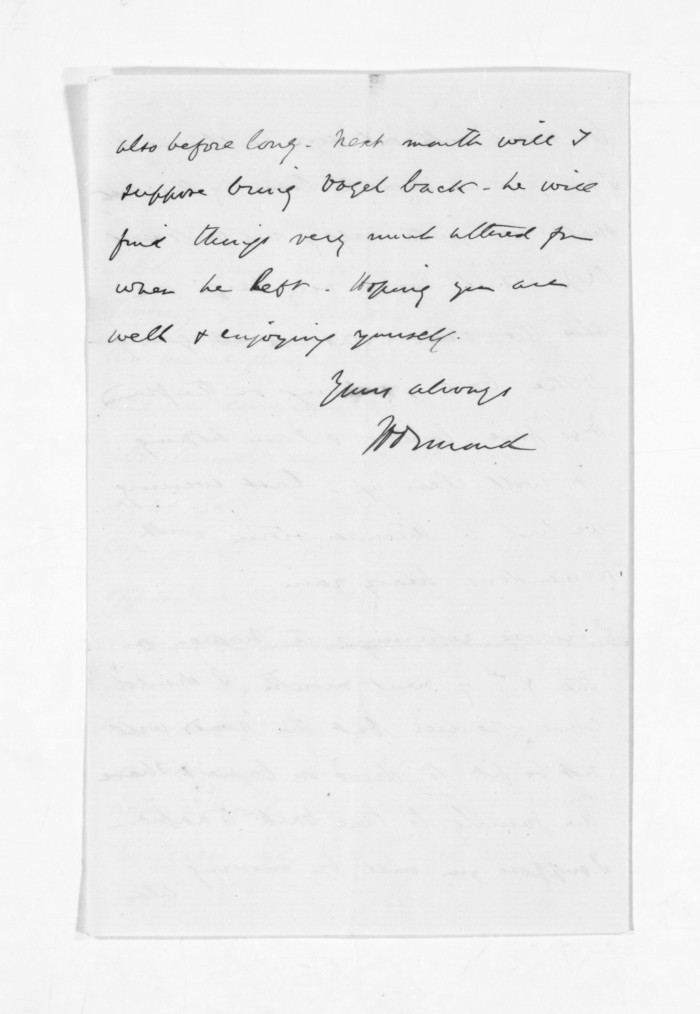 also before long - next month will I
suppose bring Vogel back - he will
find things very much altered fm
when he left - Hoping you are
well & enjoying yourself.
Yours always
JD Ormond